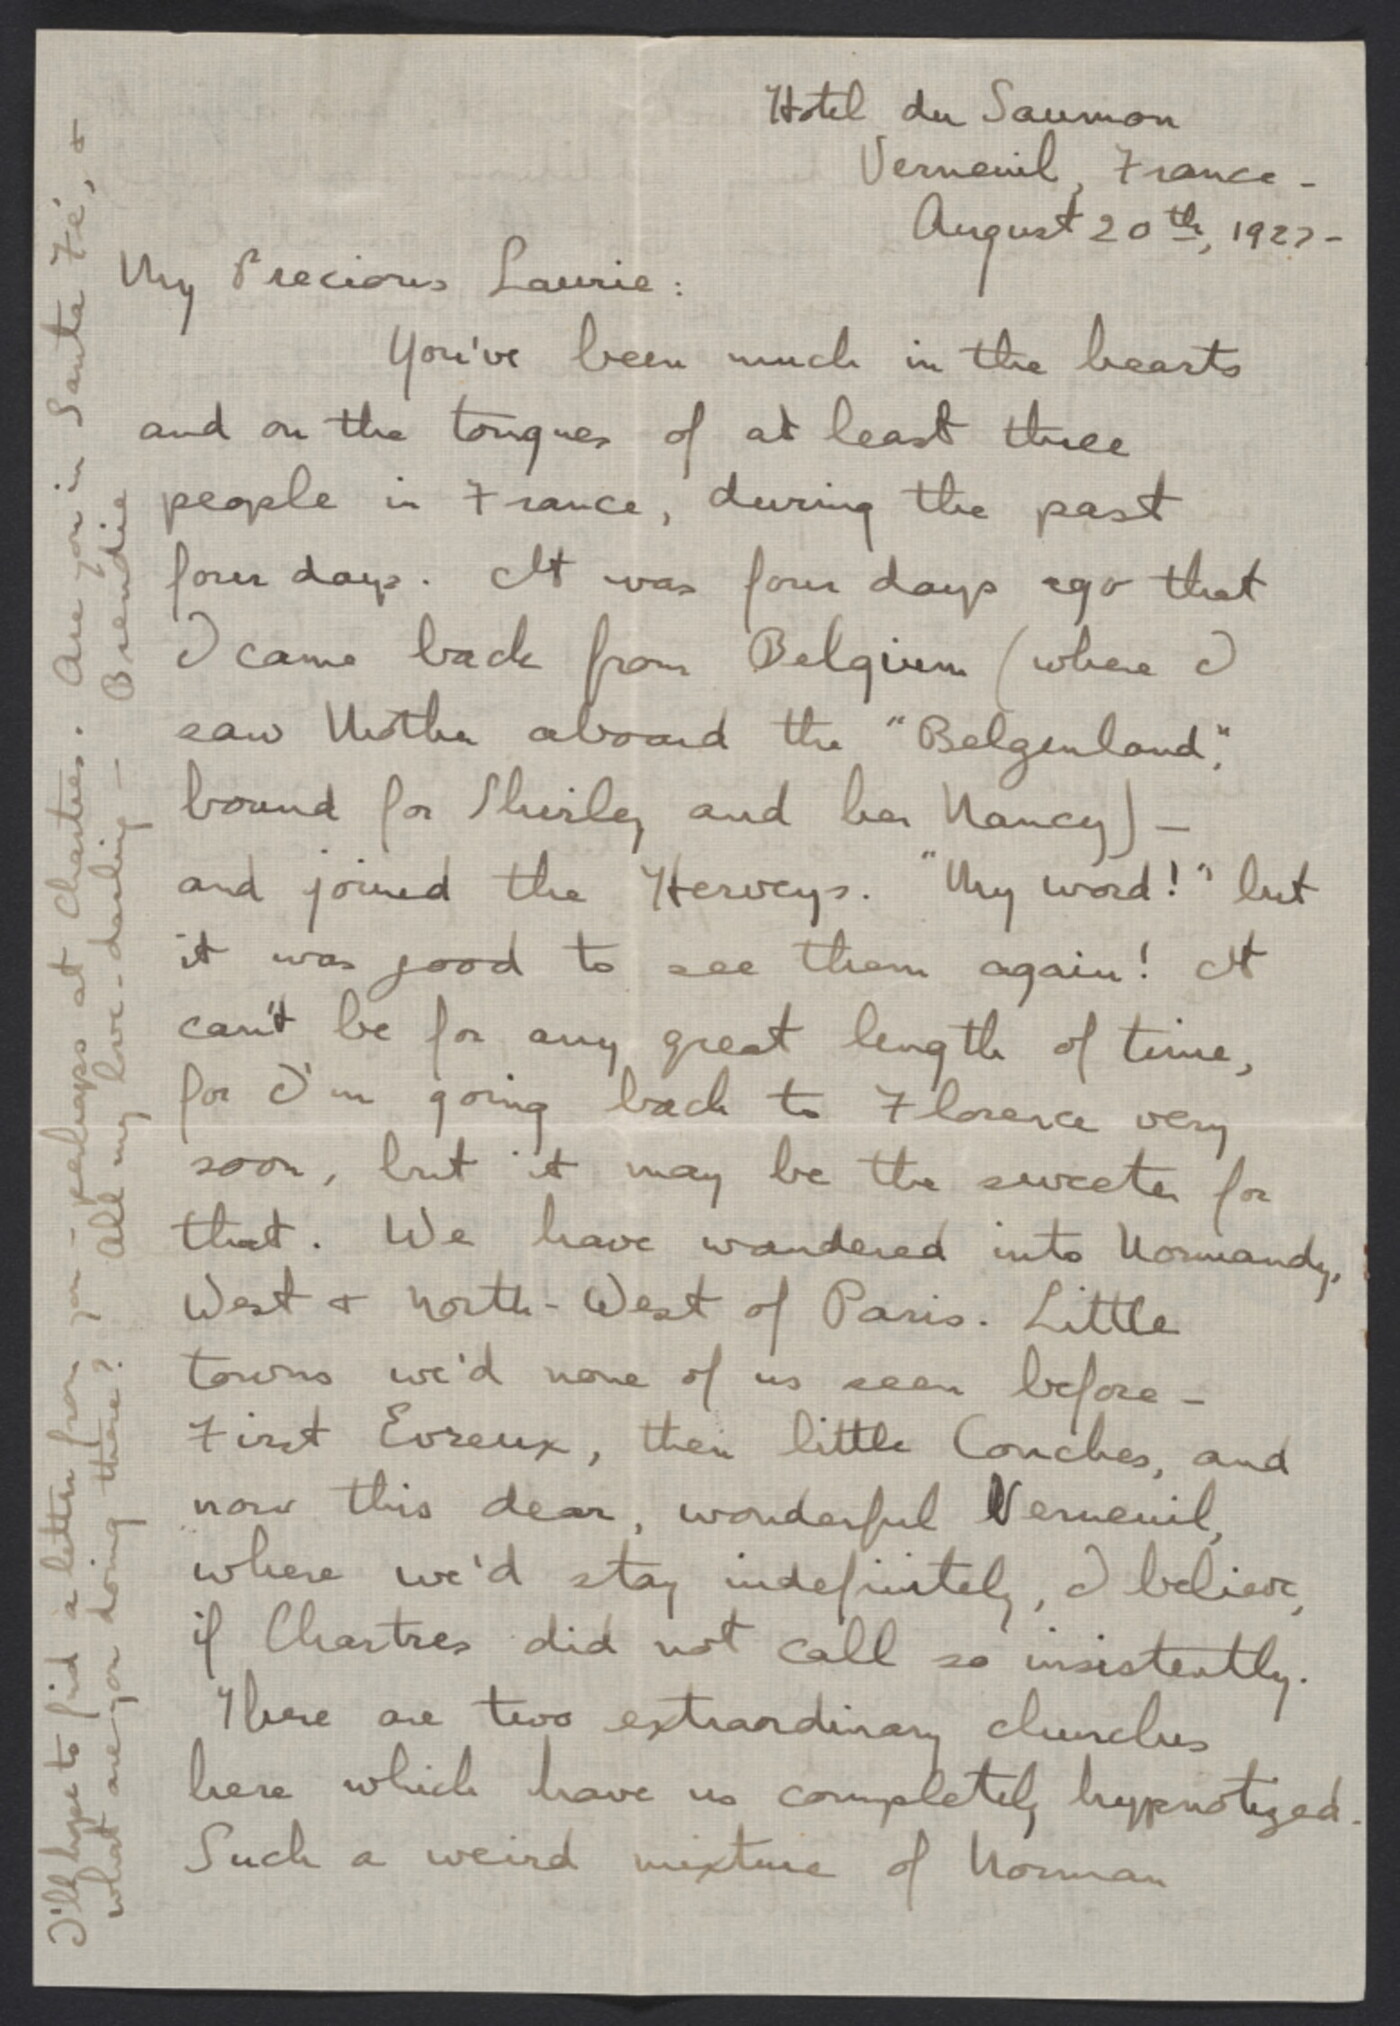 Hotel du Saumon
Verneuil, France -
August 20th, 1927 -
My Precious Laurie:
You've been much in the hearts
and on the tongues of at least three
people in France, during the past
four days. It was four days ago that
I came back from Belgium (where I
saw Mother aboard the "Belgenland",
bound for Shirley and her Nancy) -
and joined the Herveys. "My word!" but
it was good to see them again! It
can't be for any great length of time,
for I'm going back to Florence very
soon, but it may be the sweeter for
that. We have wandered into Normandy,
West + North-West of Paris. Little
towns we'd none of us seen before -
First Evreux, then little Conches, and
now this dear, wonderful Verneuil,
where we'd stay indefinitely, I believe,
if Chartres did not call so insistently.
There are two extraordinary churches
here which have us completely hypnotized.
Such a weird mixture of Norman
I'll hope to find a letter from you - perhaps at Chartres. Are you in Santa Fé, +
what are you doing there? All my love - darling - Brendie